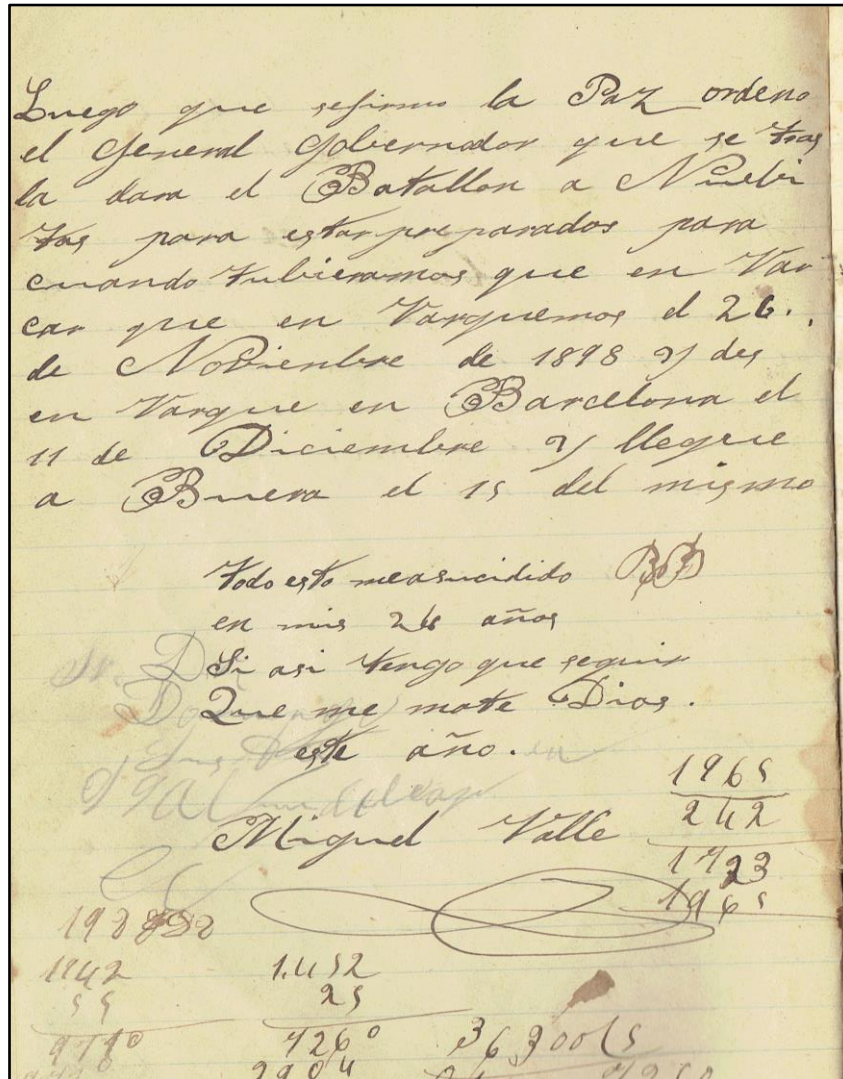 Luego que sefirmo la Paz ordeno
el General Gobernador que se tras
la dara el Batallon a Nuebi
tas para estar preparados para
cuando tubieramos que en Var
car que en Varquemos el 26.
de Noviembre de 1898 y des
en Varque en Barcelona el
11 de Diciembre y llegue
a Buera el 15 del mismo
todo esto measucidido
en mis 26 años
Si asi tengo que seguir
Que me mate Dios.
este año.
Miguel Valle
1965
242
1723
1965
1942
55
9710
1.452
25
7260
2904
36300